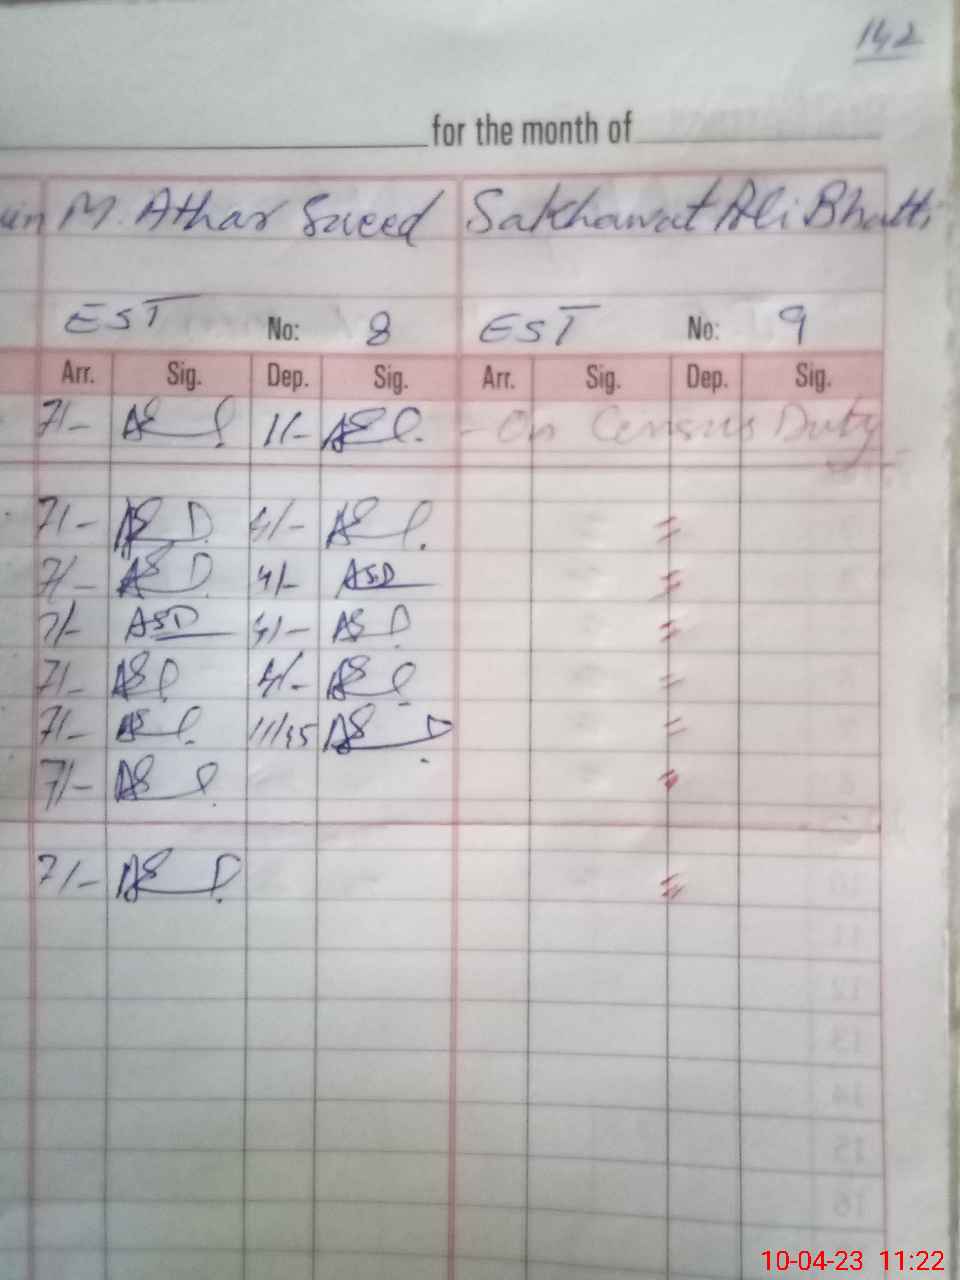 142
for the month of
M. Athar Saeed Sakhawat Ali Bhatti
EST No: 8 EST No: 9
Arr. Sig. Dep. Sig. Arr. Sig. Dep. Sig.
7/- 11/- - On Census Duty
7/- 4/- =
7/- ASD 4/- ASD =
7/- ASD 4/- ASD =
7/- 4/- =
7/- 11/45 =
7/- =
7/- =
10
11
12
13
14
15
16
10-04-23 11:22